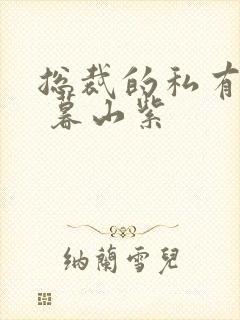 总裁的私有
暮山紫
納蘭雪兒